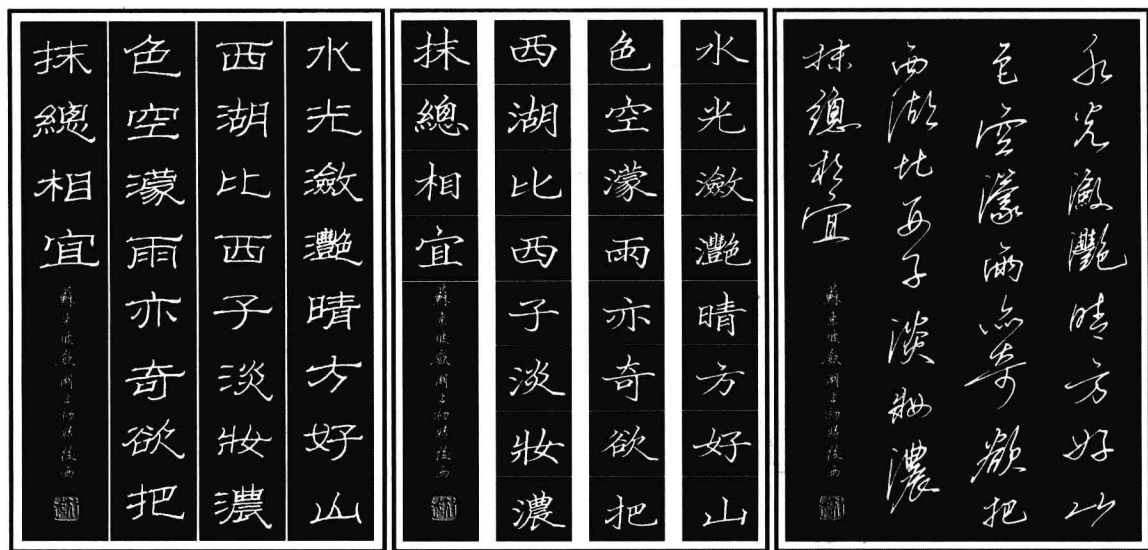 水光瀲灩晴方好山
西湖比西子淡妝濃
色空濛雨亦奇欲把
抹總相宜
蘇東坡飲湖上初晴後雨
水光瀲灩晴方好山
色空濛雨亦奇欲把
西湖比西子淡妝濃
抹總相宜
蘇東坡飲湖上初晴後雨
水光瀲灩晴方好山
色空濛雨亦奇欲把
西湖比西子淡妝濃
抹總相宜
蘇東坡飲湖上初晴後雨